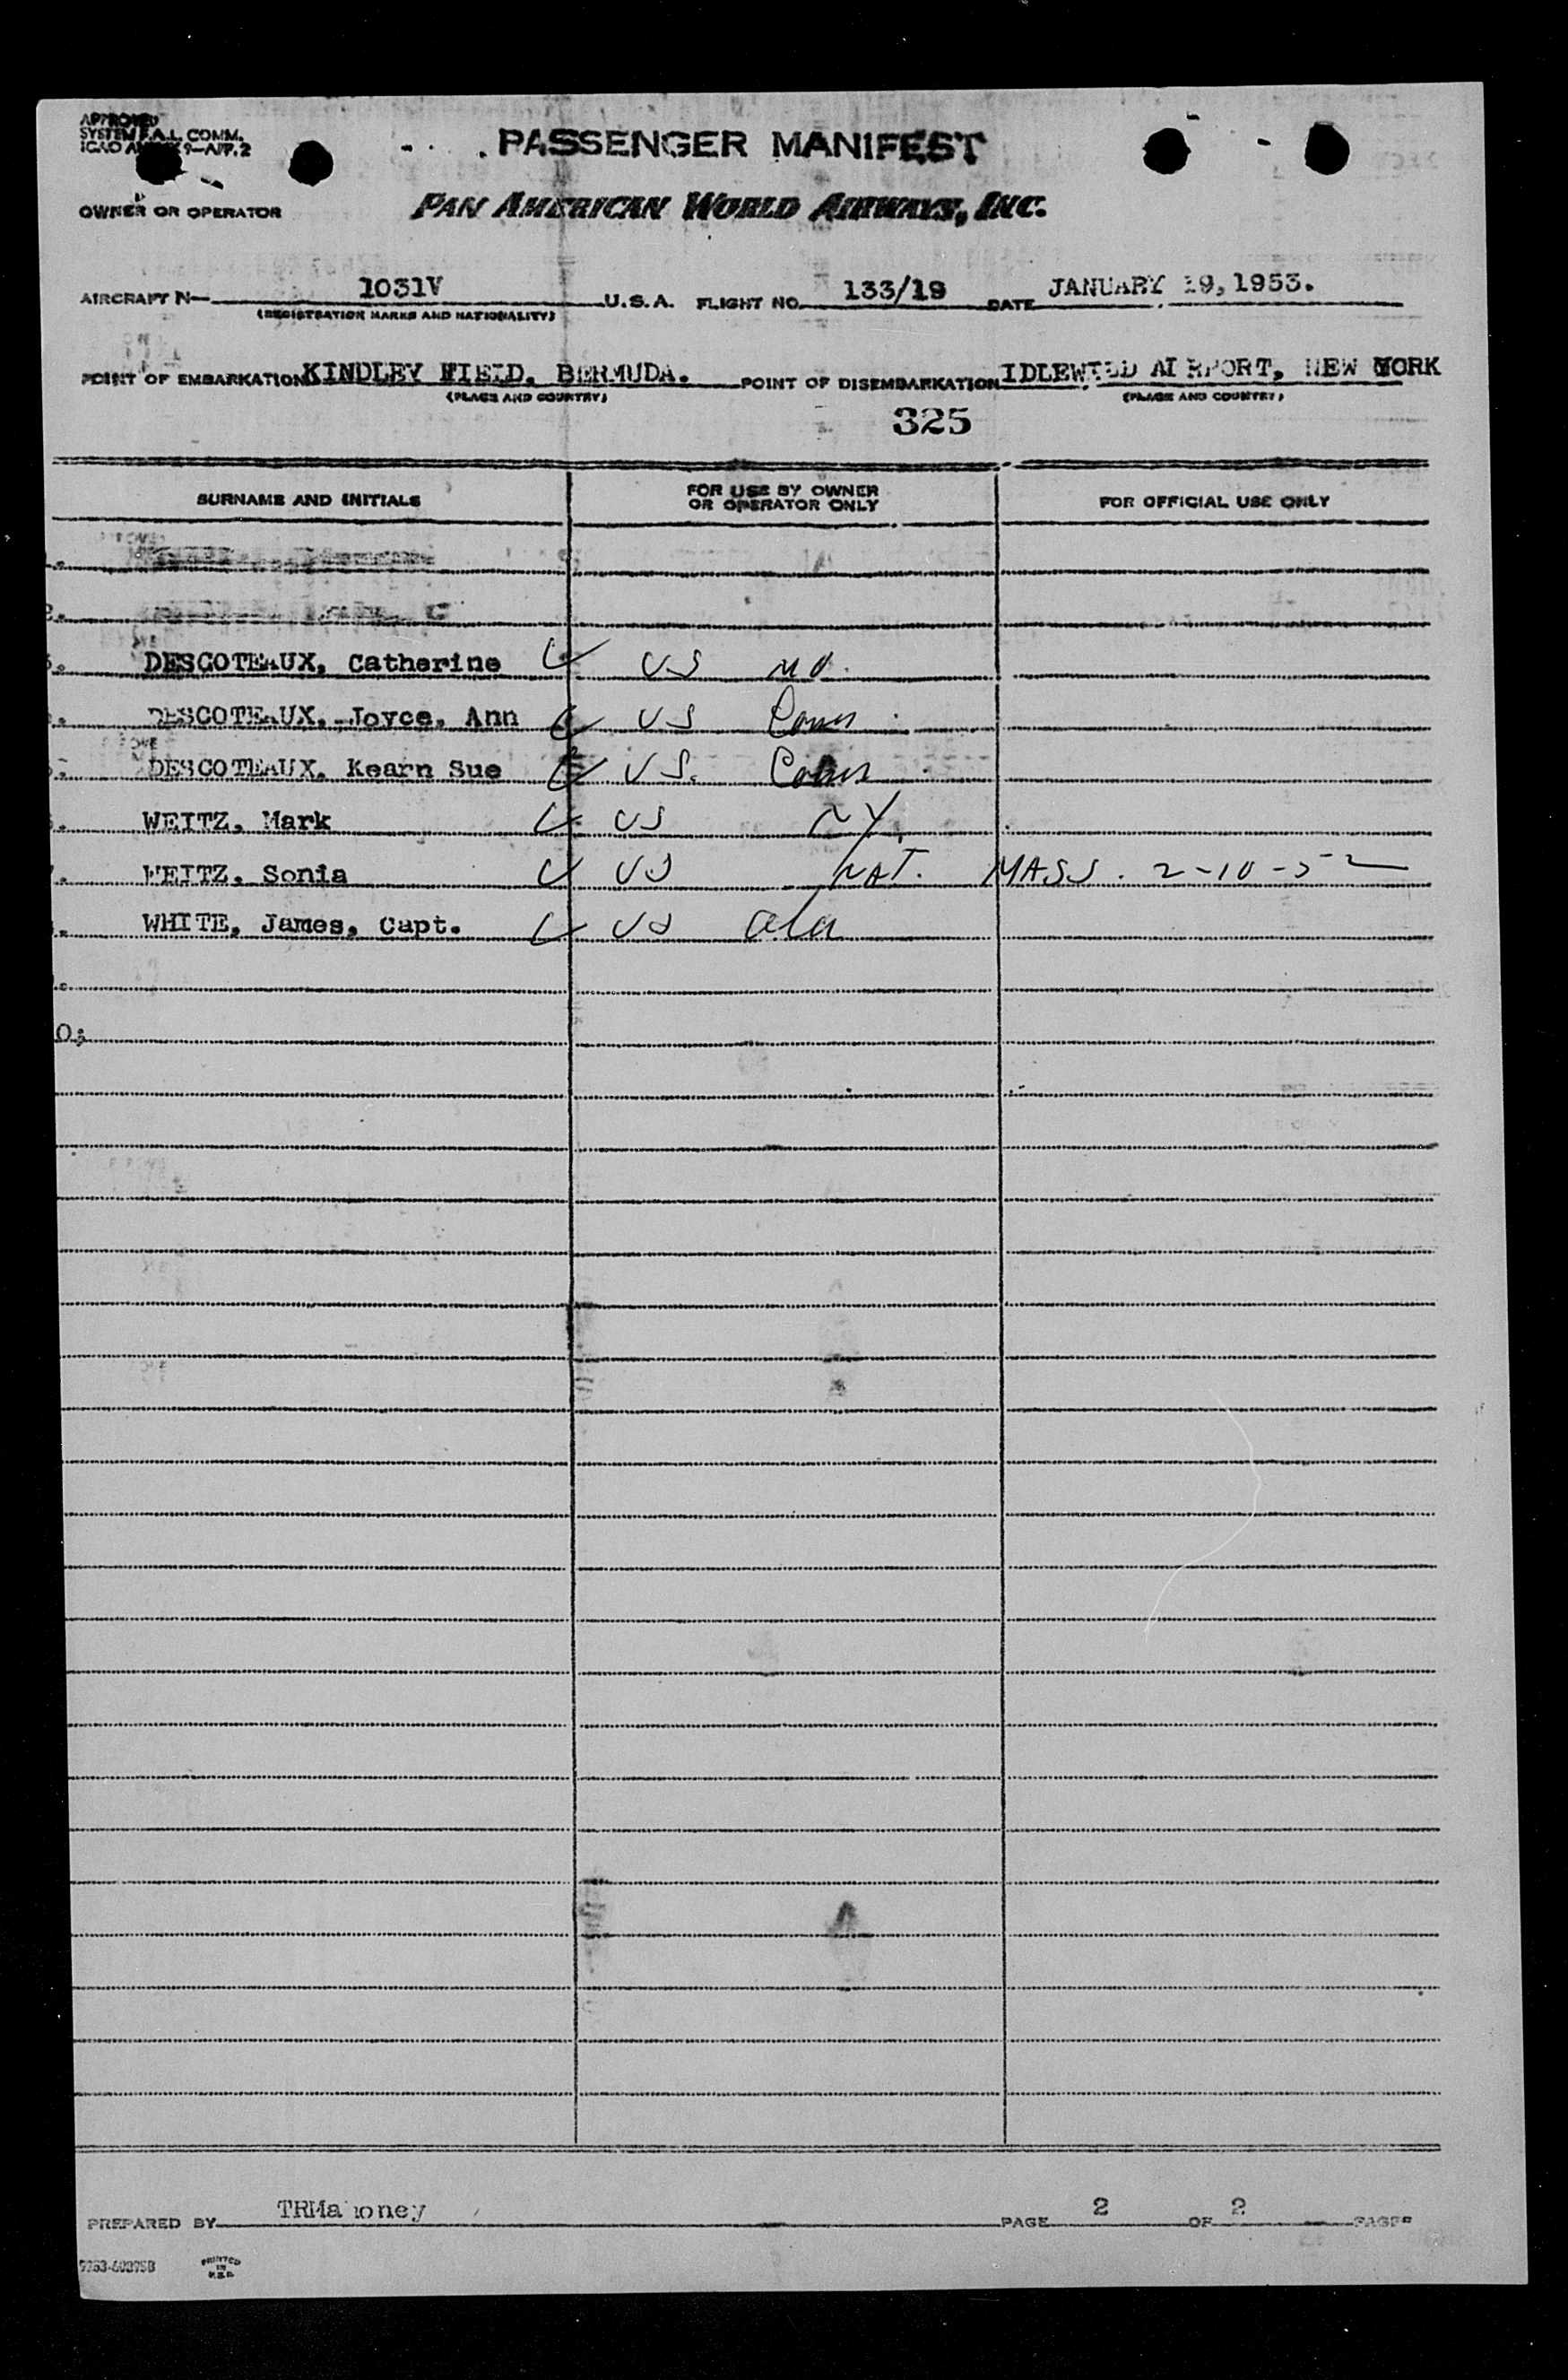 APPROVED
SYSTEM F.A.L. COMM.
ICAO 9—APP. 2
PASSENGER MANIFEST
OWNER OR OPERATOR PAN AMERICAN WORLD AIRWAYS, INC.
AIRCRAFT N— 1031V U.S.A. FLIGHT NO. 133/19 DATE JANUARY 19, 1953.
(REGISTRATION MARKS AND NATIONALITY)
POINT OF EMBARKATION KINDLEY FIELD, BERMUDA. POINT OF DISEMBARKATION IDLEWILD AIRPORT, NEW YORK
(PLACE AND COUNTRY) (PLACE AND COUNTRY)
325
SURNAME AND INITIALS FOR USE BY OWNER OR OPERATOR ONLY FOR OFFICIAL USE ONLY
DESCOTEAUX, Catherine US
DESCOTEAUX, Joyce, Ann US Conn
DESCOTEAUX, Kearn Sue US. Conn
WEITZ, Mark US NY.
WEITZ, Sonia US NAT. MASS. 2-10-52
WHITE, James, Capt. US ala
0.
PREPARED BY TRMahoney PAGE 2 OF 2 PAGES
PRINTED
IN
U.S.A.